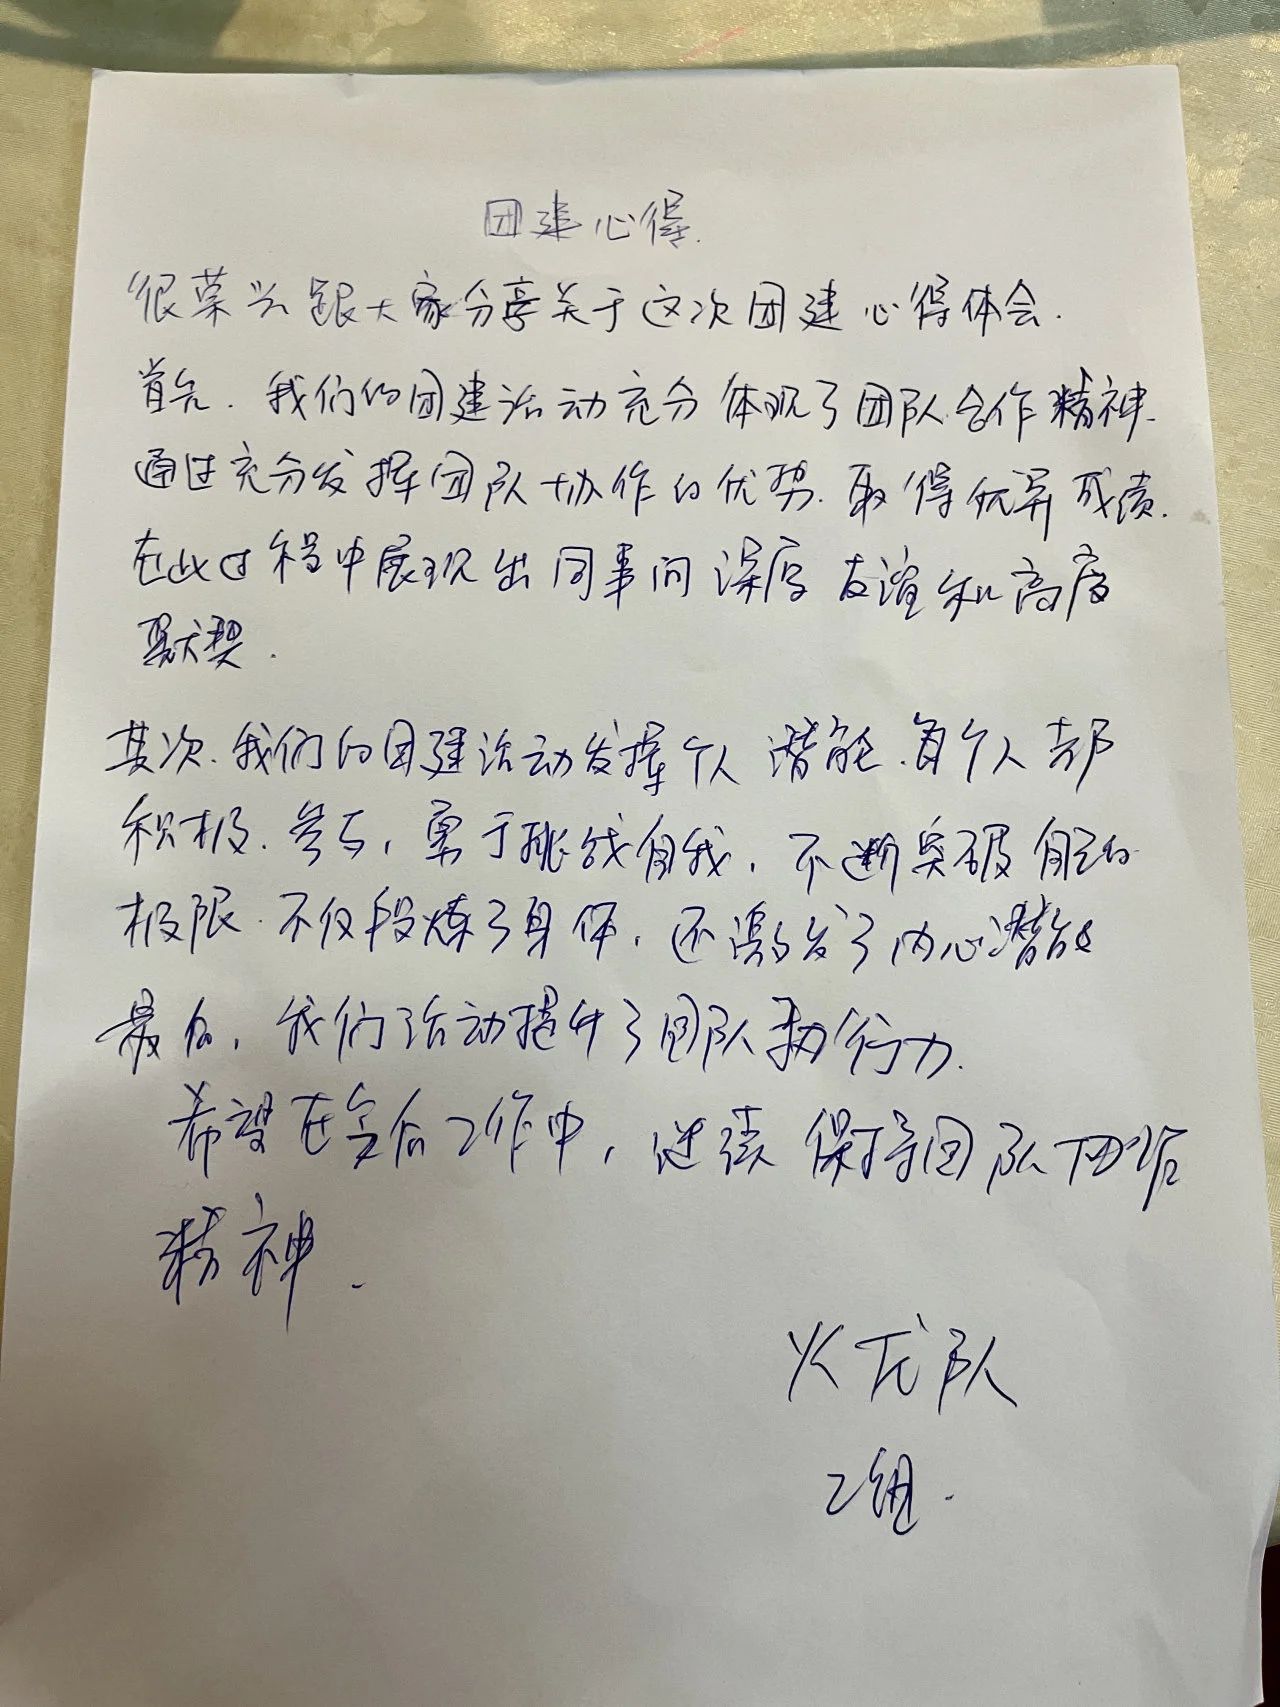 团建心得.
很荣兴跟大家分享关于这次团建心得体会.
首先.我们的团建活动充分体现了团队合作精神.
通过充分发挥团队协作的优势.取得优异成绩.
在此过程中展现出同事间深厚友谊和高度
默契.
其次.我们的团建活动发挥个人潜能.每个人都
积极.参与,勇于挑战自我,不断突破自己的
极限.不仅段炼了身体,还激发了内心潜能
最后,我们活动提升了团队执行力.
希望在今后工作中,继续保持团队协作
精神.
火龙队
2组.